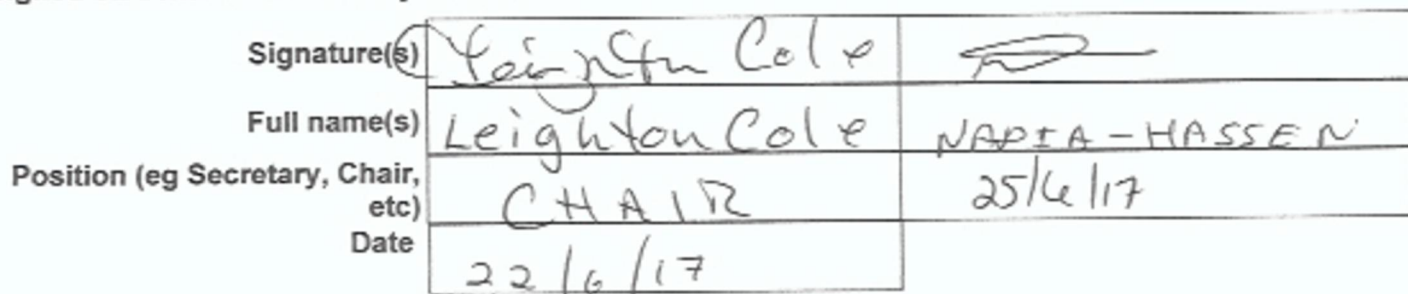 Signature(s) Leighton Cole
Full name(s) Leighton Cole NADIA-HASSEN
Position (eg Secretary, Chair,
etc) CHAIR 25/6/17
Date 22/6/17